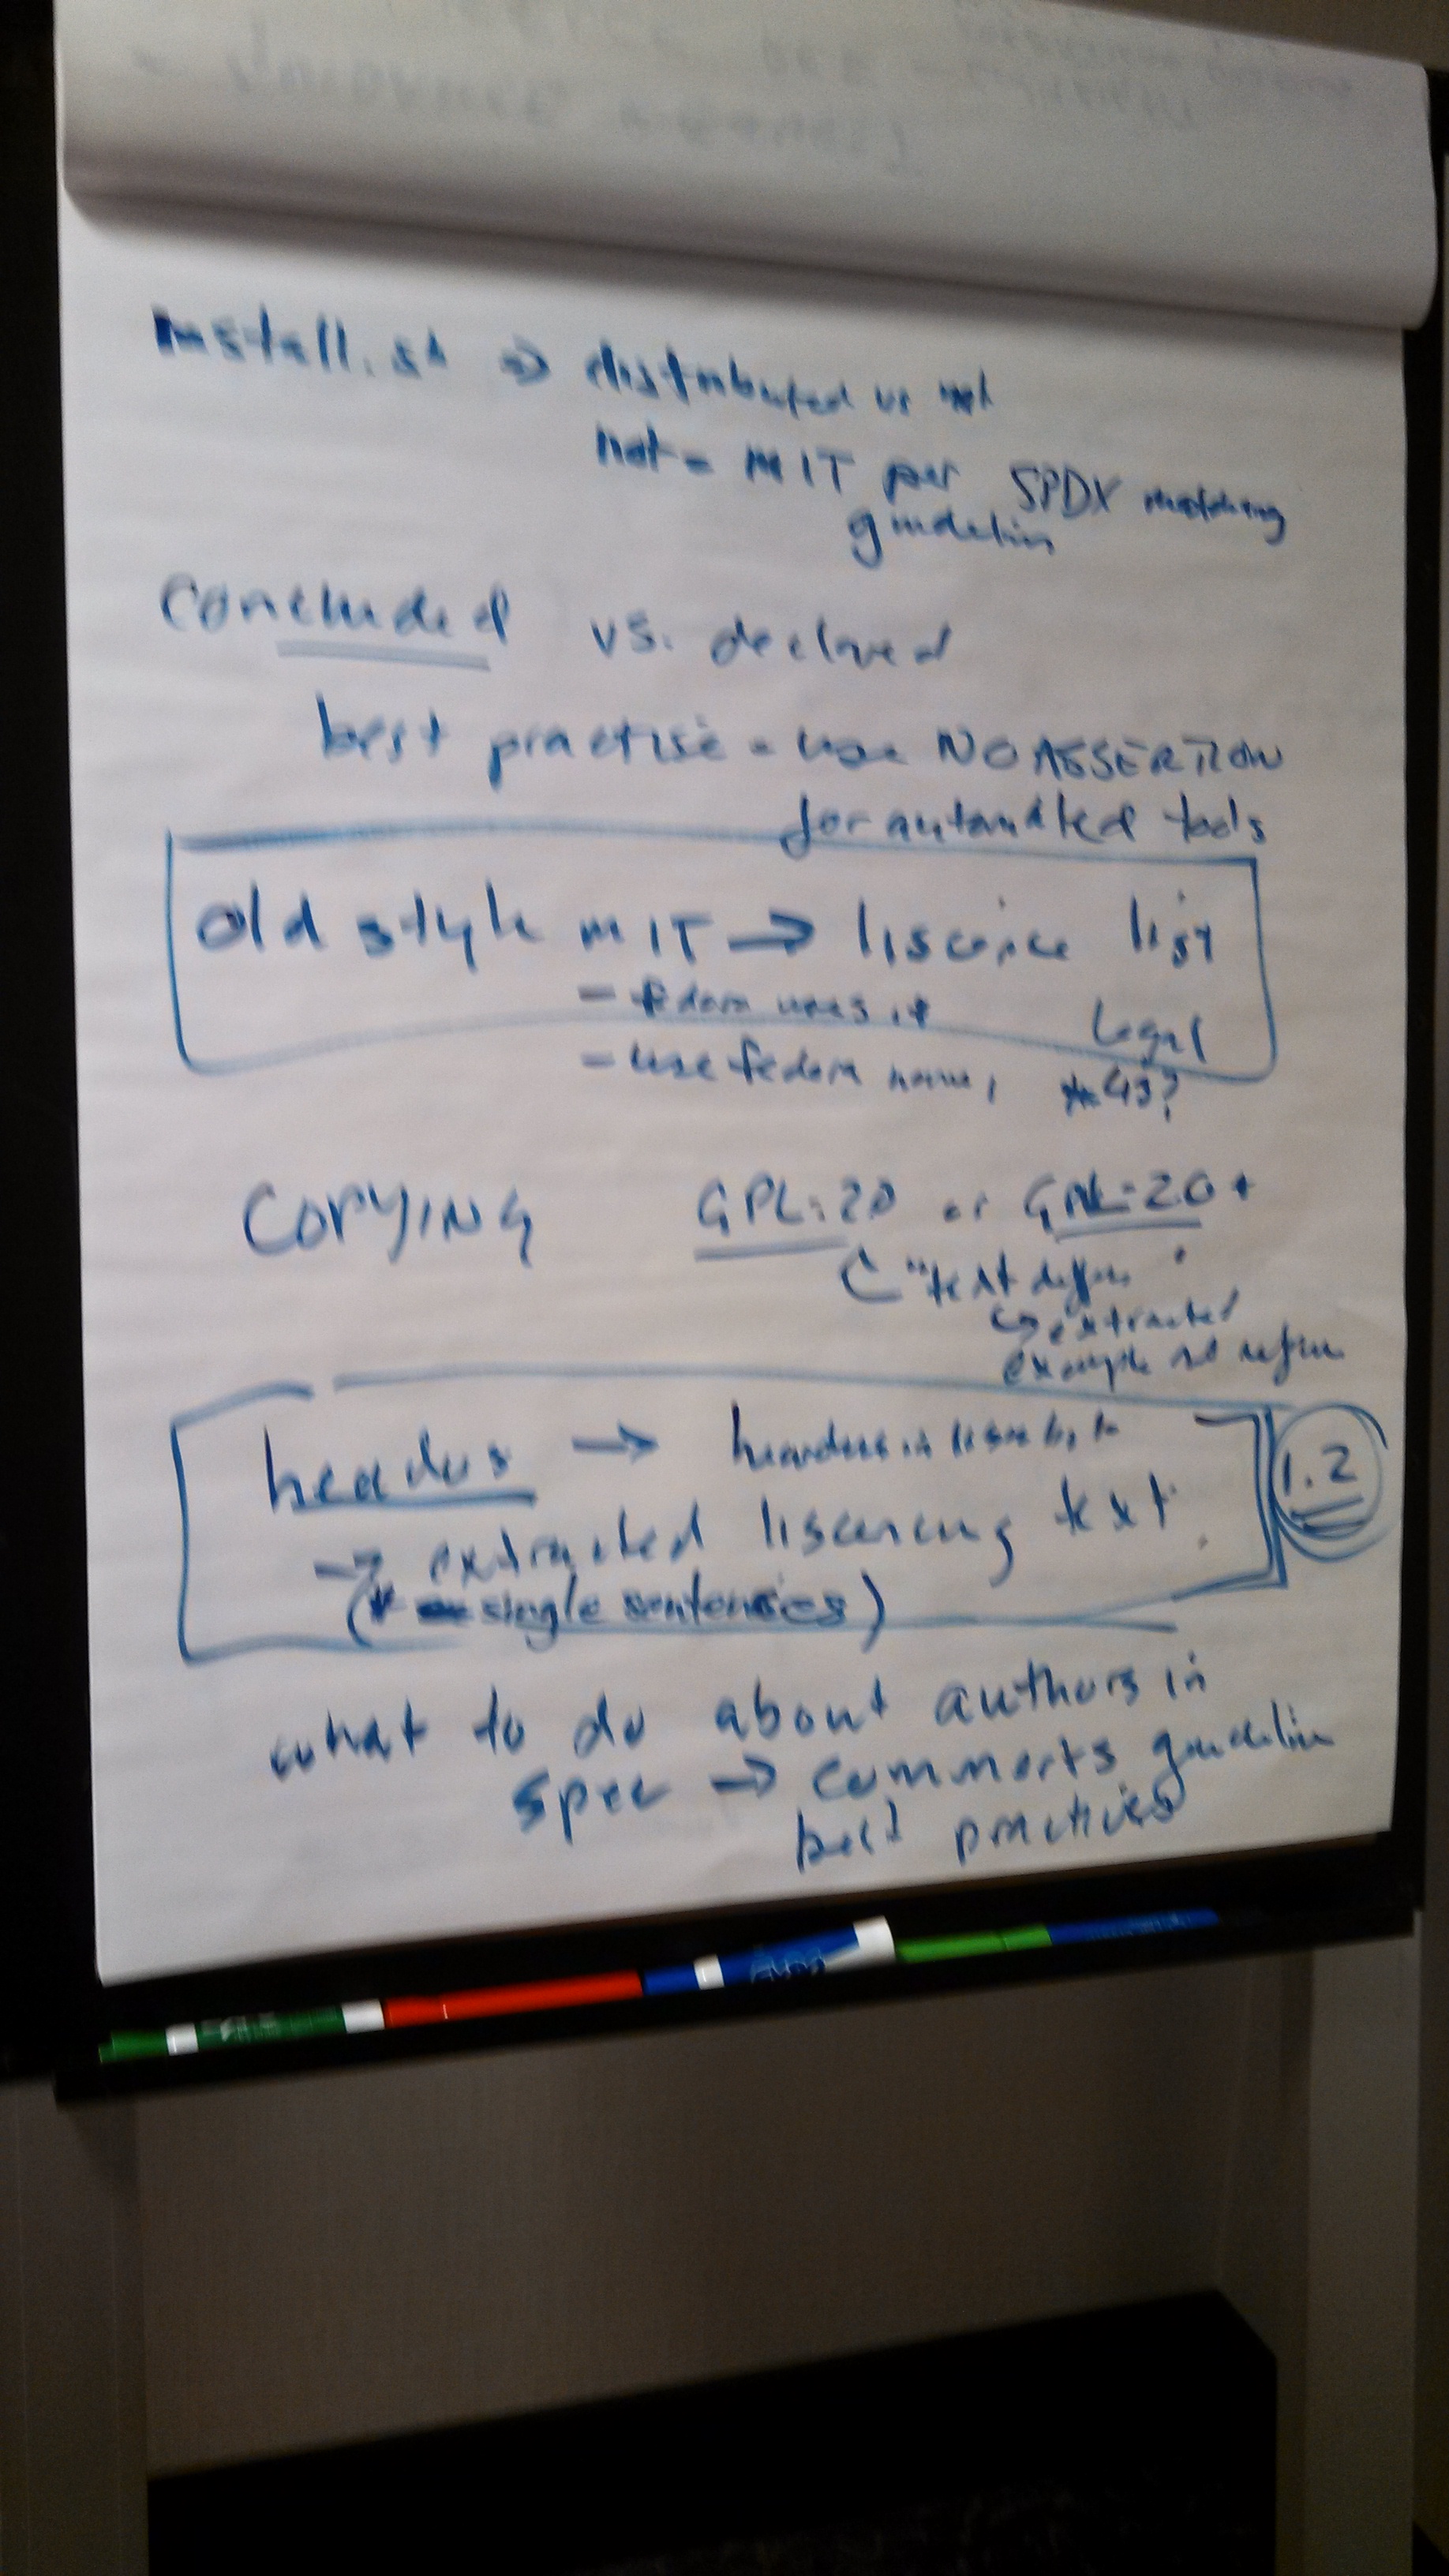 install.sh => distributed vs not
not = MIT per SPDX matching
guidelines
concluded vs. declared
best practise - use NO ASSERTION
for automated tools
old style MIT → liscence list
- fedora uses it
Legal
- use fedora names
COPYING GPL-2.0 or GPL-2.0+
"text differs"
↳ extracted
example
headers → headers in
→ extracted liscencing text
(single sentences)
1.2
what to do about authors in
spec → comments guideline
best practices